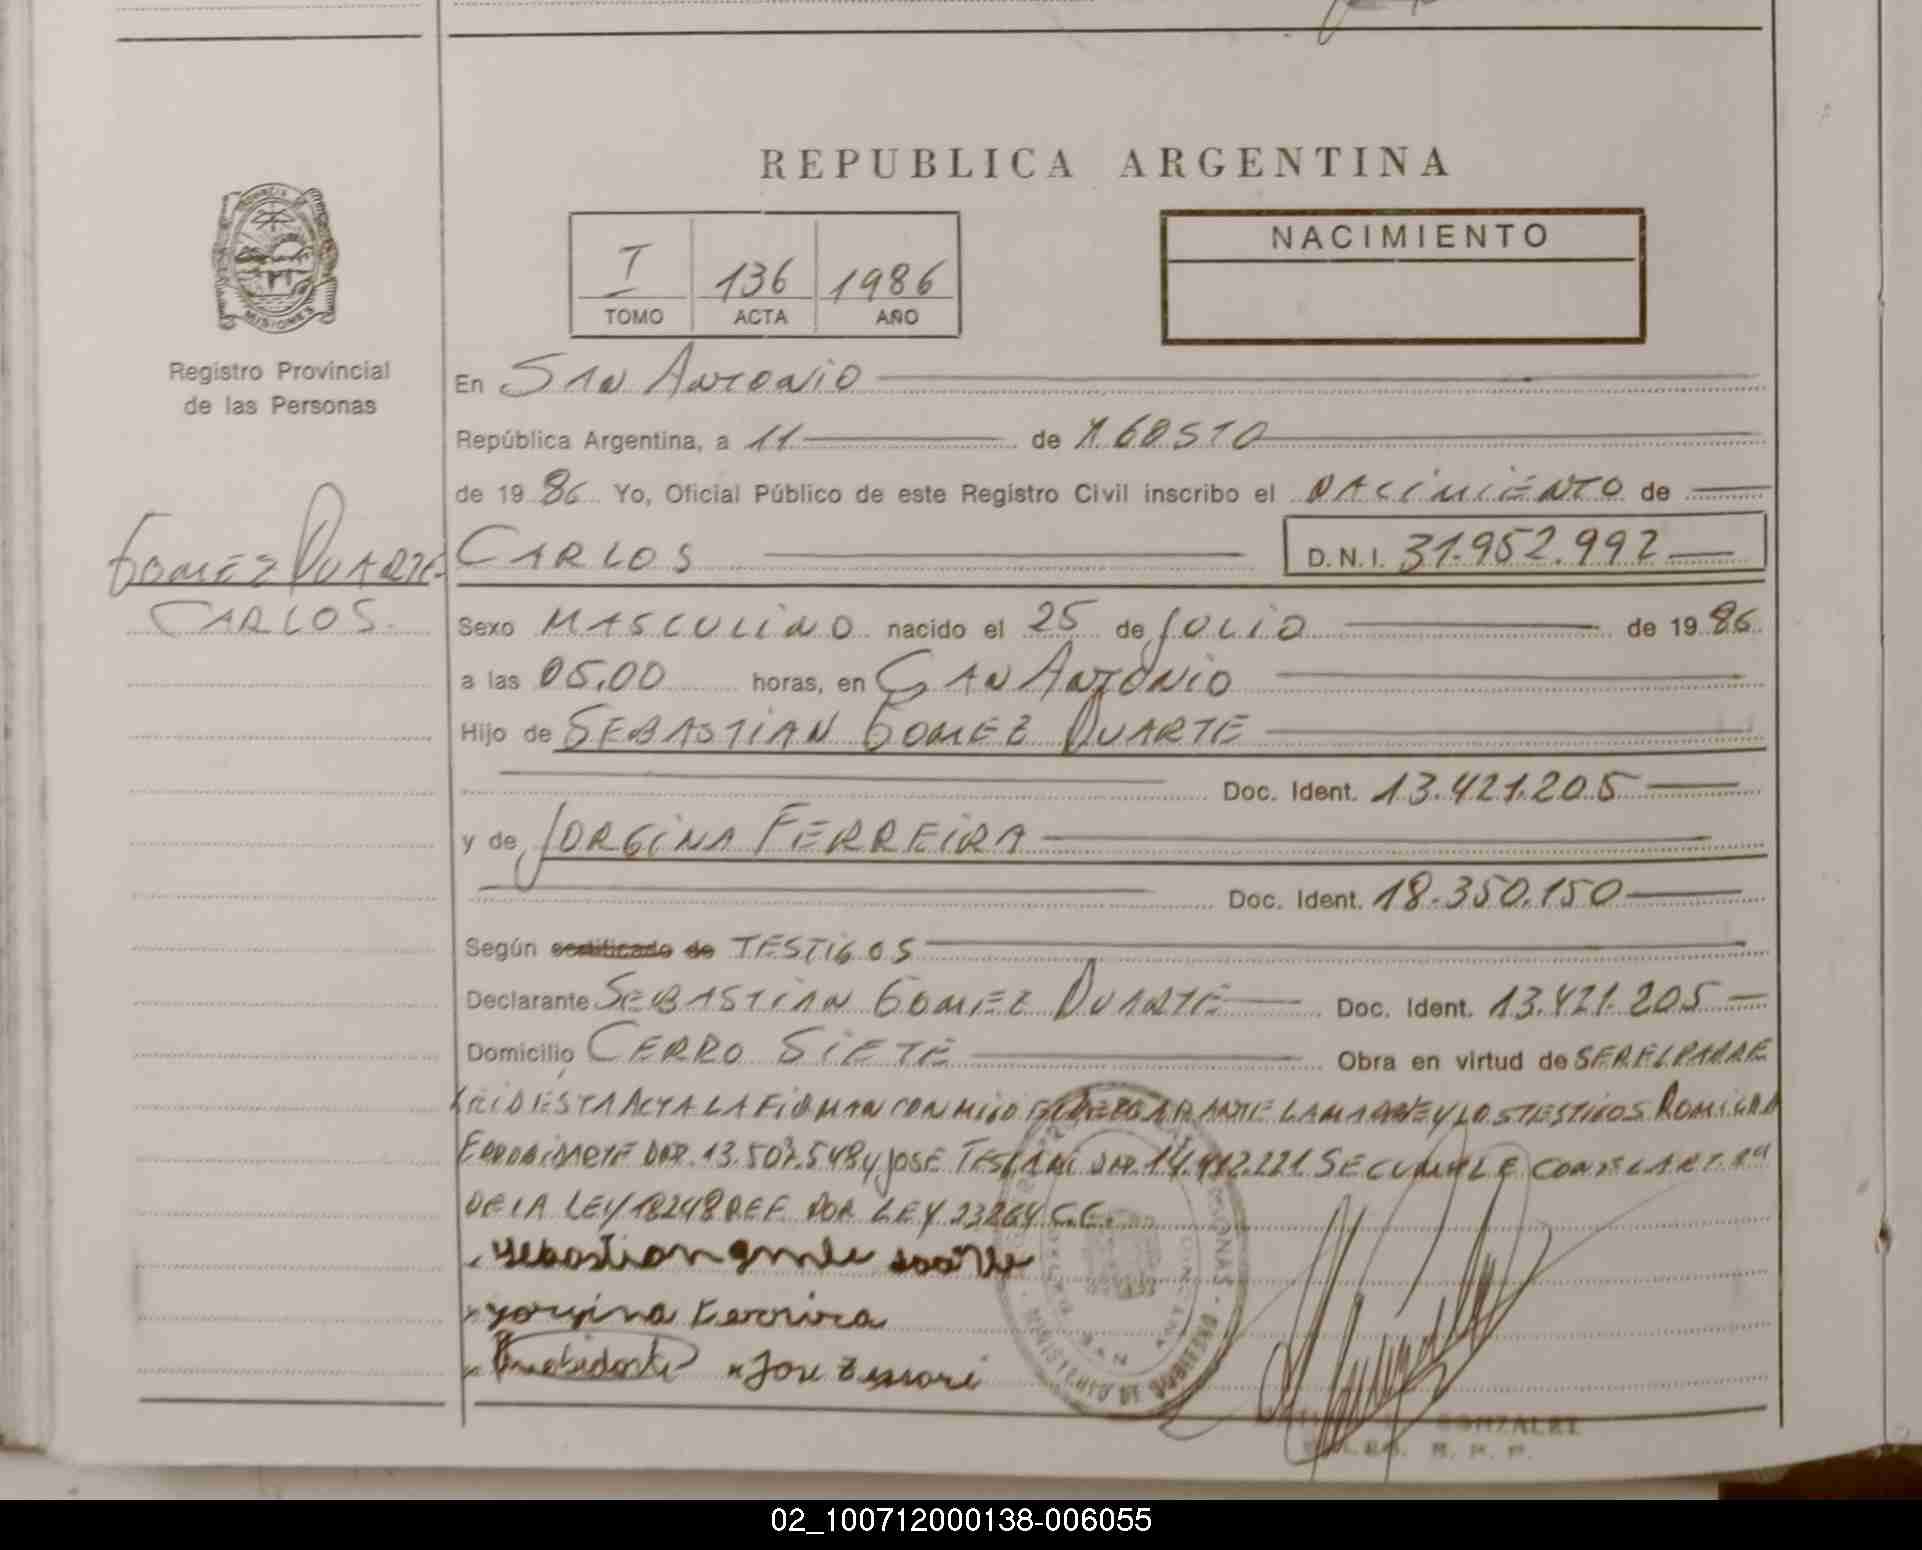 REPUBLICA ARGENTINA
PROVINCIA DE MISIONES
Registro Provincial
de las Personas
I 136 1986
TOMO ACTA AÑO
NACIMIENTO
En SAN ANTONIO
República Argentina, a 11 de AGOSTO
de 19 86 Yo, Oficial Público de este Registro Civil inscribo el NACIMIENTO de
GOMEZ DUARTE
CARLOS
CARLOS D.N.I. 31.952.992
Sexo MASCULINO nacido el 25 de JULIO de 19 86
a las 05,00 horas, en SAN ANTONIO
Hijo de SEBASTIAN GOMEZ DUARTE
Doc. Ident. 13.421.205
y de JORGINA FERREIRA
Doc. Ident. 18.350.150
Según certificado de TESTIGOS
Declarante SEBASTIAN GOMEZ DUARTE Doc. Ident. 13.421.205
Domicilio CERRO SIETE Obra en virtud de SER EL PADRE
LEIDESTA ACTA LA FIRMAN CON MIGO LA MADRE Y LOS TESTIGOS
13.507.548 y JOSE SE CUMPLE CON EL ART.
DE LA LEY 18248 REF. POR LEY 23264 C.E.
Sebastian
Jorgina Ferreira
Jose
MINISTERIO DE GOBIERNO
SAN ANTONIO
GONZALEZ
R. P. P.
02_100712000138-006055